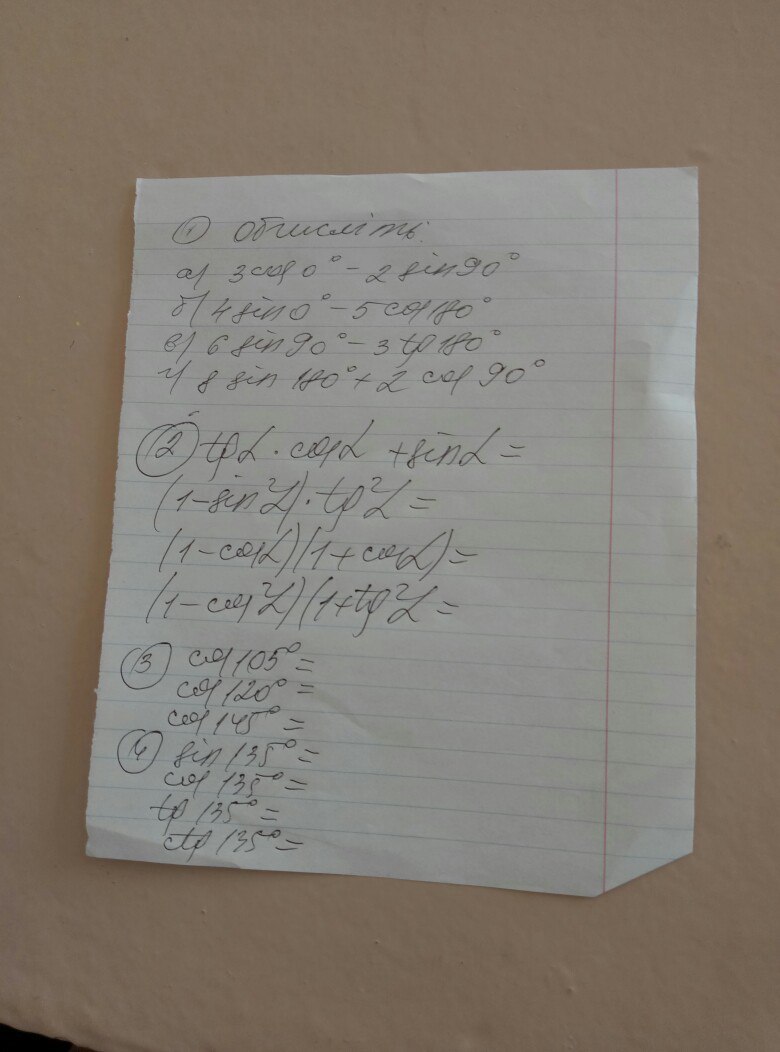 ① Обчисліть:
а) 3 cos 0° - 2 sin 90°
б) 4 sin 0° - 5 cos 180°
в) 6 sin 90° - 3 tg 180°
г) 8 sin 180° + 2 cos 90°
② tg α · cos α + sin α =
(1 - sin² α) · tg² α =
(1 - cos α)(1 + cos α) =
(1 - cos² α)(1 + tg² α =
③ cos 105° =
cos 120° =
cos 145° =
④ sin 135° =
cos 135° =
tg 135° =
ctg 135° =